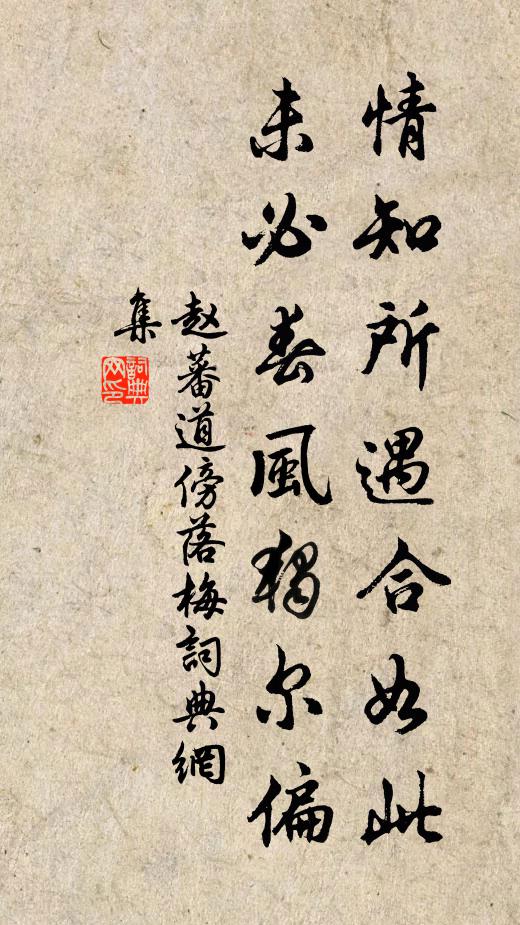 情知所遇合如此
未必春風獨尔偏
赵蕃道傍落梅詞典網
集
詞典
网印